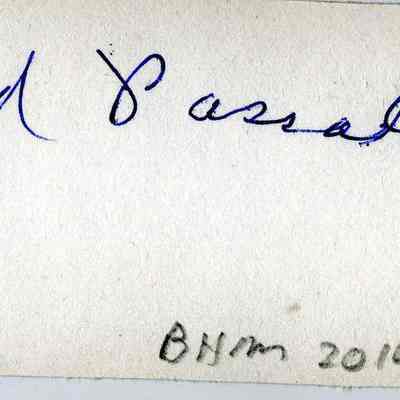 d Vassal
BHM 201